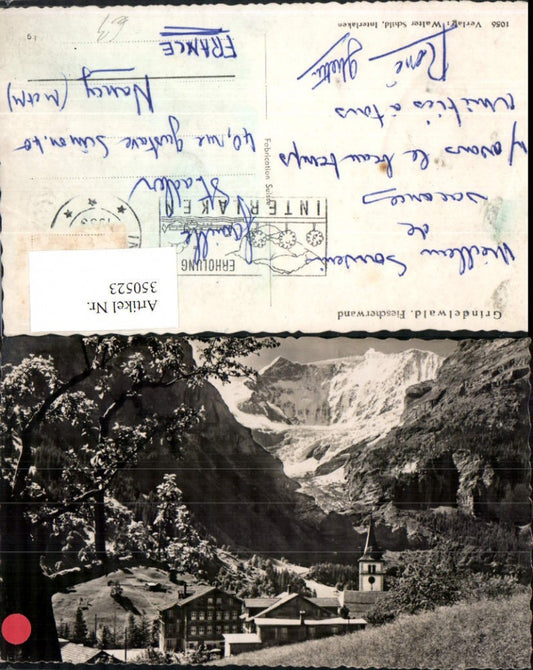 Grindelwald. Fiescherwand
Meilleur Souvenir
de
vacances
n/ avons le beau temps
Amitiés à tous
René
1056 Verlag: Walter Schild, Interlaken
Fabrication Suisse
INTERLAKEN
ERHOLUNG
Famille
Stadler
40, rue Gustave Simon. 40
Nancy (M et M)
FRANCE
63
Artikel Nr.
350523